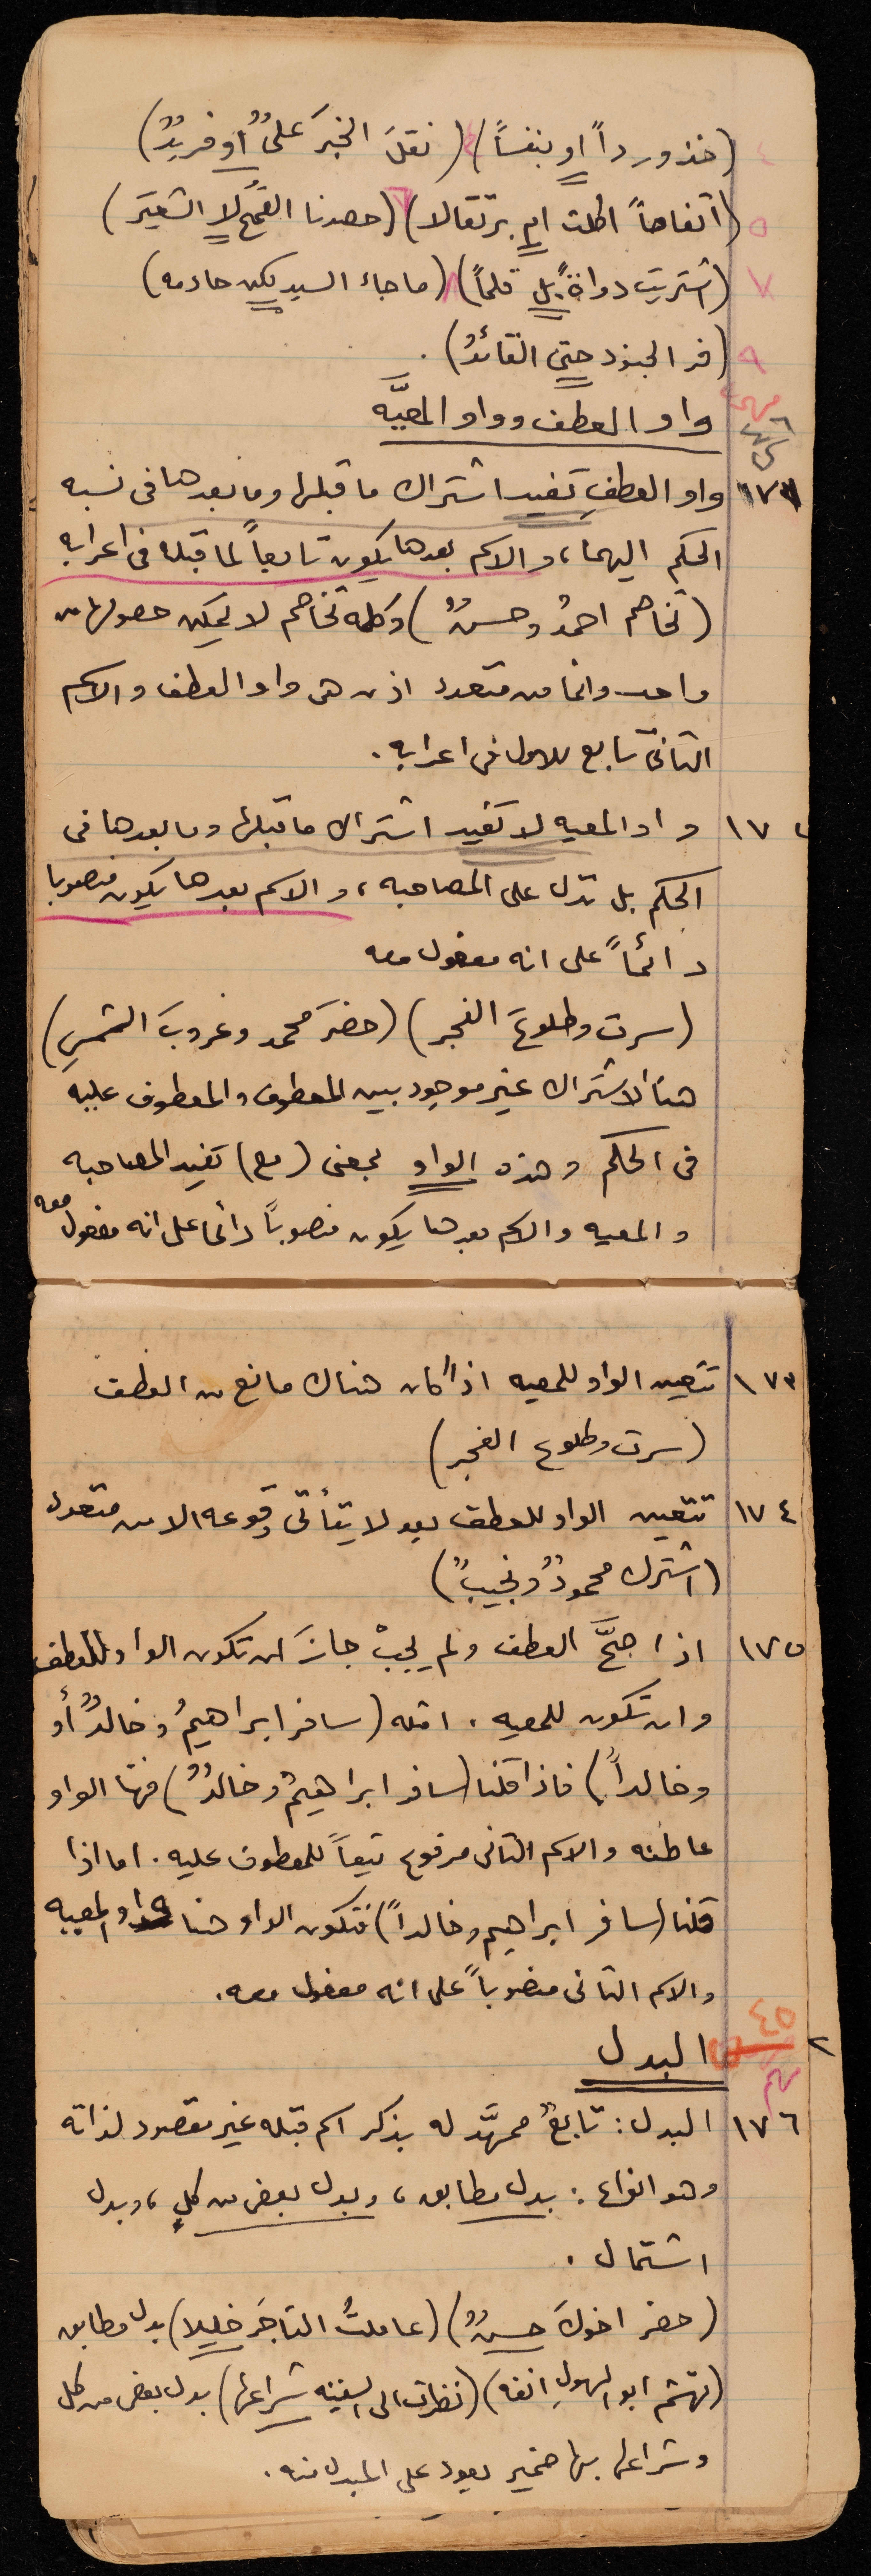 ٤ (خذ ورداً او بنفساً) (نقلَ الخبرَ علىٌ او فريدٌ)
٥ (أتفاحاً اكلت ام برتقالا) ٦ (حصدنا القمحَ لا الشعيرَ)
٧ (اشتريت دواةً بل قلماً) ٨ (ما جاء السيد لكن خادمه)
٩ (فر الجنود حتى القائدُ).
مهمة
واو العطف وواو المعيَّه
١٧١ واو العطفِ تفيد اشتراك ما قبلها وما بعدها فى نسبه
الحكم اليهما، والاسم بعدها يكون تابعاً لما قبله فى اعرابه
(تخاصم احمدُ وحسنٌ) وكلمه تخاصم لا يمكن حصولها من
واحد وانما من متعدد اذن هى واو العطف والاسم
الثانى تابع للاول فى اعرابه.
١٧٢ واو المعيه لا تفيد اشتراك ما قبلها وما بعدها فى
الحكم بل تدل على المصاحبه، والاسم بعدها يكون منصوبا
دائماً على انه مفعول معه
(سرت وطلوعَ الفجر) (حضرَ محمد وغروبَ الشمسِ)
هنا الاشتراك غير موجود بين المعطوف والمعطوف عليه
فى الحكم وهذه الواو بمعنى (مع) تفيد المصاحبه
والمعيه والاسم بعدها يكون منصوباً دائما على انه مفعول معه
١٧٣ تتعين الواو للمعيه اذا كان هناك مانع من العطف
(سرت وطلوع الفجر)
١٧٤ تتعين الواو للعطف بعد لا يتأتى وقوعه الا من متعدد
(اشترك محمودٌ ونجيبٌ)
١٧٥ اذا صحَّ العطف ولم يجبْ جازَ ان تكون الواو للعطف
وان تكون للمعيه. امثله (سافر ابراهيمُ وخالدٌ أو
وخالداً) فاذا قلنا (سافر ابراهيمُ وخالدٌ) فهنا الواو
عاطفه والاسم الثانى مرفوع تبعاً للمعطوف عليه. اما اذا
قلنا (سافر ابراهيم وخالداً) فتكون الواو هنا واو المعيه
والاسم الثانى منصوباً على انه مفعول معه.
٤٥
البدل
١٧٦ البدل: تابعٌ ممهَّد له بذكر اسم قبله غير مقصود لذاته
وهو انواع: بدل مطابق، وبدل بعض من كلٍ، وبدل
اشتمال.
(حضر اخوكَ حسنٌ) (عاملتُ التاجَر خليلا) بدل مطابق
(تهشم ابو الهولِ انفه) (نظرت الى السفينه شراعها) بدل بعض من كل
وشراعها بها ضمير يعود على المبدل منه.